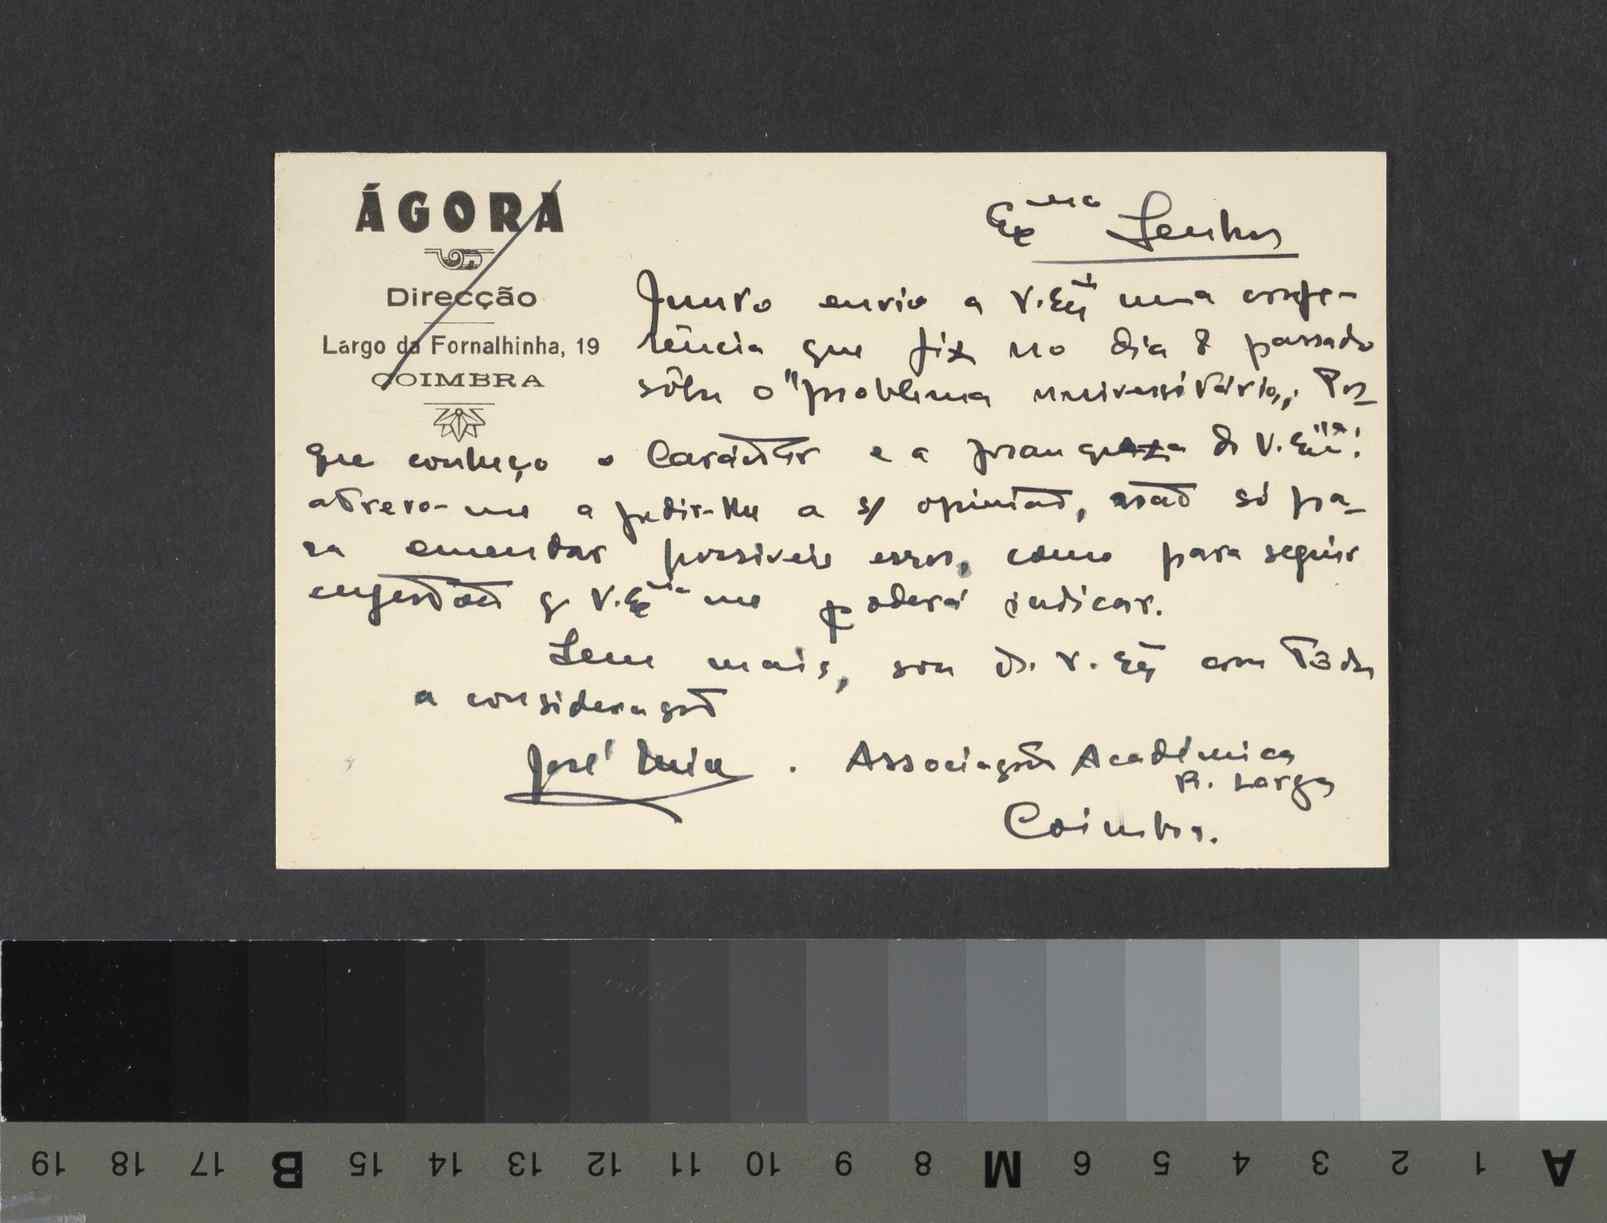 ÁGORA
Direcção
Largo da Fornalhinha, 19
COIMBRA
Exmo Senhor
Junto envio a V. Exª uma confe-
rência que fiz no dia 8 passado
sôbre o "problema universitário". Por-
que conheço o Carácter e a franqueza de V. Exª:
atrevo-me a pedir-lhe a s/ opinião, não só pa-
ra emendar possiveis erros, como para seguir
sugestões q V. Exia me poderá indicar.
Sem mais, sou de V. Exª com tôda
a consideração
José . Associação Académica
R. Larga
Coimbra.
19 18 17 B 15 14 13 12 11 10 9 8 M 6 5 4 3 2 1 A